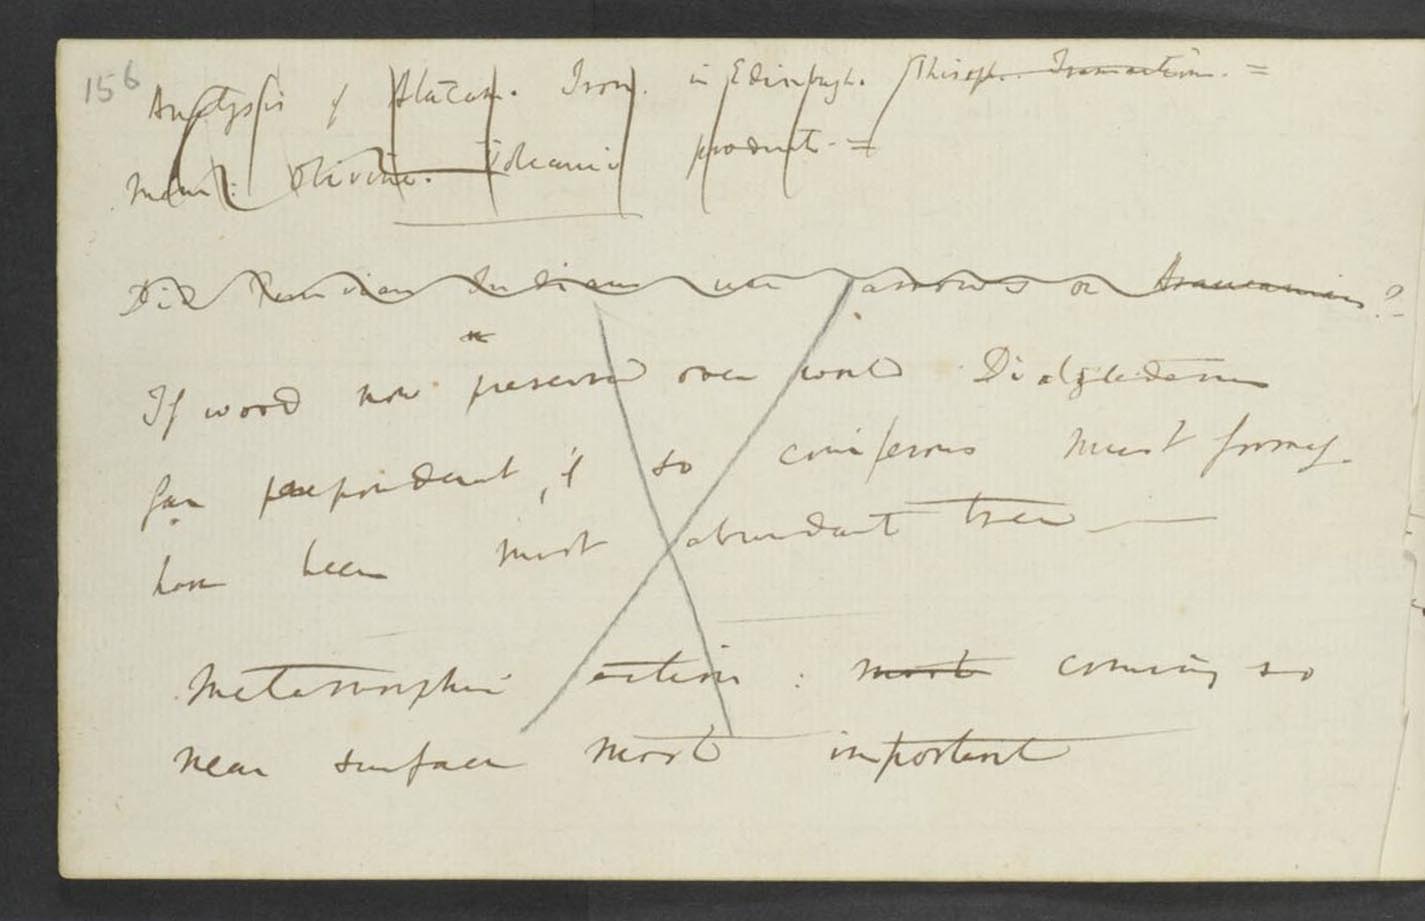 156
Analysis of Atacam. Iron. in Edinburgh. Philosoph. Transaction. =
Mem: Olivine. Volcanic product. =
Did Peruvian Indians use arrows or Araucanians?
If wood now preserved over world Dicotyledenous
far preponderant, if so coniferous must formerly
have been most abundant tree —
Metamorphic action: most coming so
near surface most important